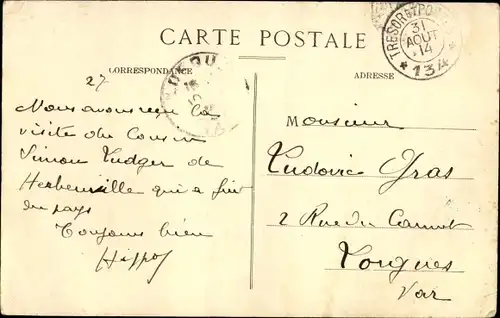 CARTE POSTALE
TRESOR ET POSTES
31
AOUT
14
* 134 *
CORRESPONDANCE
ADRESSE
27
Nous avons reçu la
visite du Cousin
Simon Ludger de
Herbeville qui a fui
du pays
Toujours bien
Monsieur
Ludovic Gras
2 Rue du Carnot
Lorgues
Var